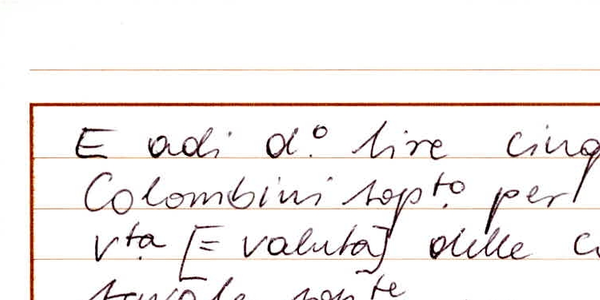 E adi d.º lire cinq
Colombini sop.to per
v.ta [= valuta] delle c
tavole sop.te